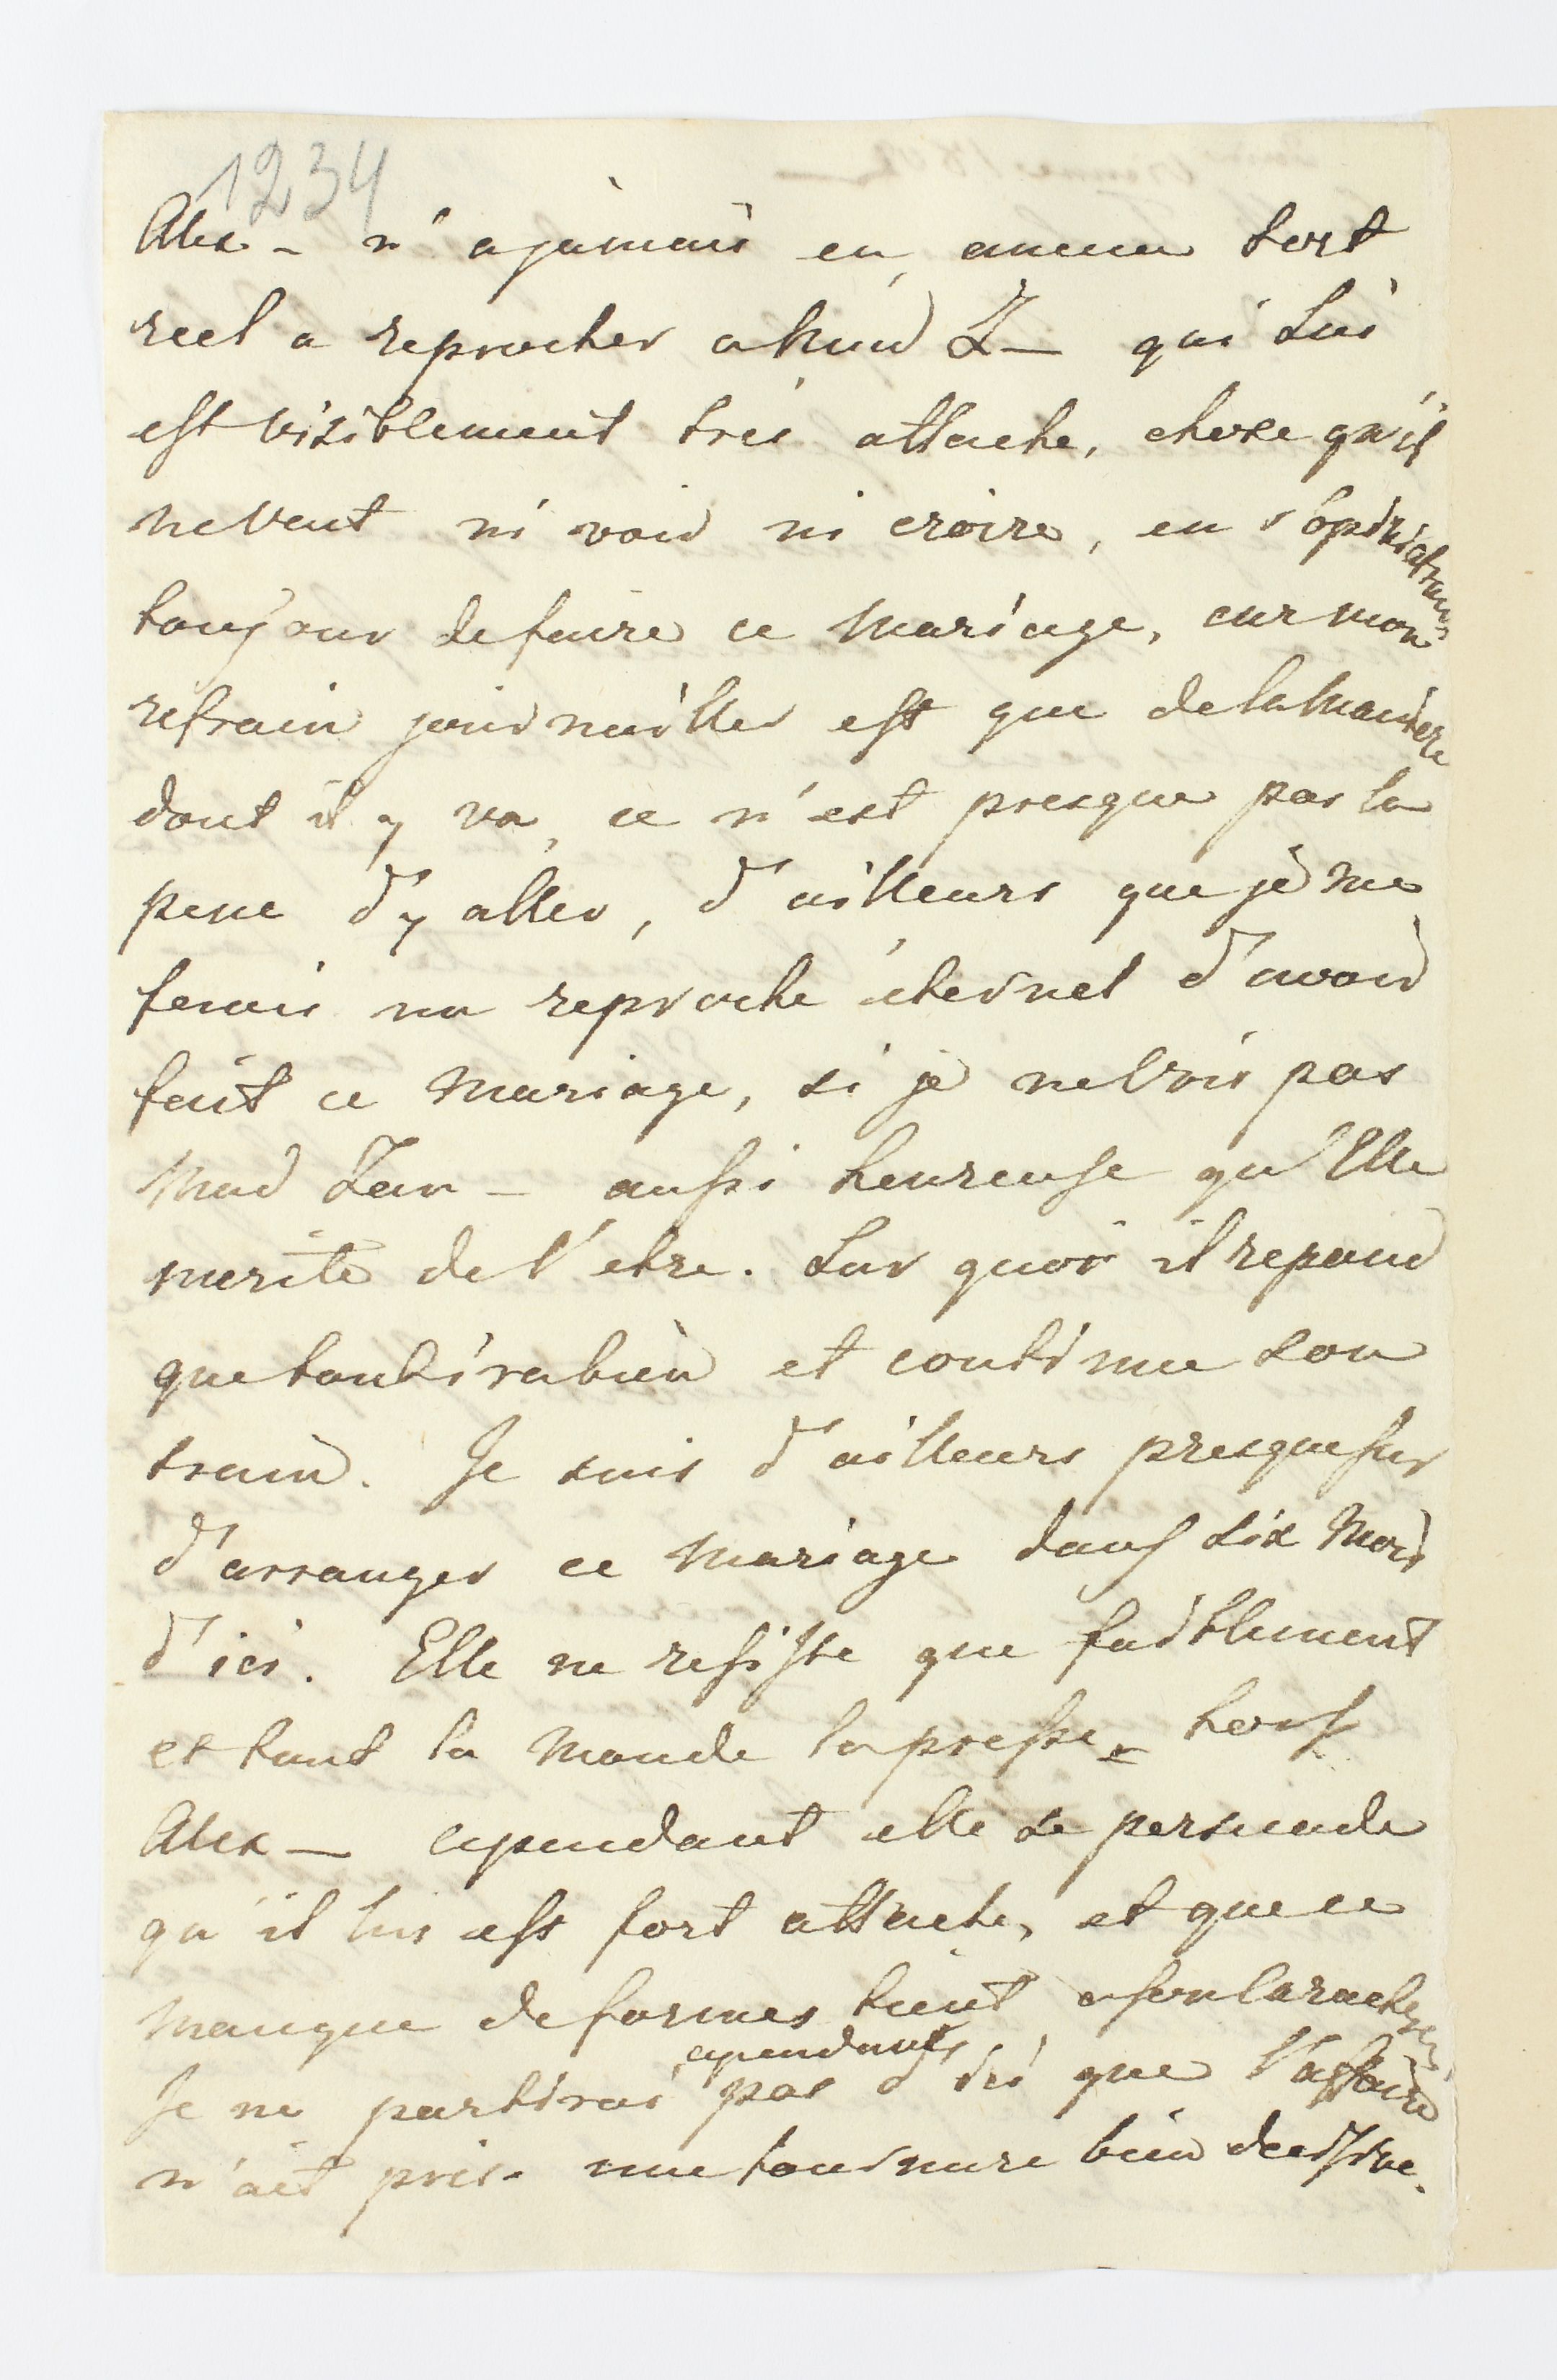 1234
Alex – n'a jamais eu aucun tort
reel a reprocher a Mad Z – qui lui
est visiblement très attache, chose qu'il
ne veut ni voir ni croire, en s'opiniatrant
toujour de faire ce mariage, car mon
refrain journailler est que de la maniere
dont il y va, ce n'est presque pas la
pene d'y aller, d'ailleurs que je me
ferais un reproche éternel d'avoir
fait ce mariage, si je ne vois pas
Mad Zen – aussi heureuse qu'Elle
merite de l'etre. Sur quoi il repond
que tout ira bien et continue son
train. Je suis d'ailleurs presque sur
d'arranger ce mariage dans six mois
d'ici. Elle ne resiste que faiblement
et tout la monde la presse, hors
Alex – cependant elle se persuade
qu'il lui est fort attache, et que ce
manque de formes tient a son caractere
cependant
Je ne partirai pas d'ici que l'affaire
n'ait pris une tournure bien decisive.